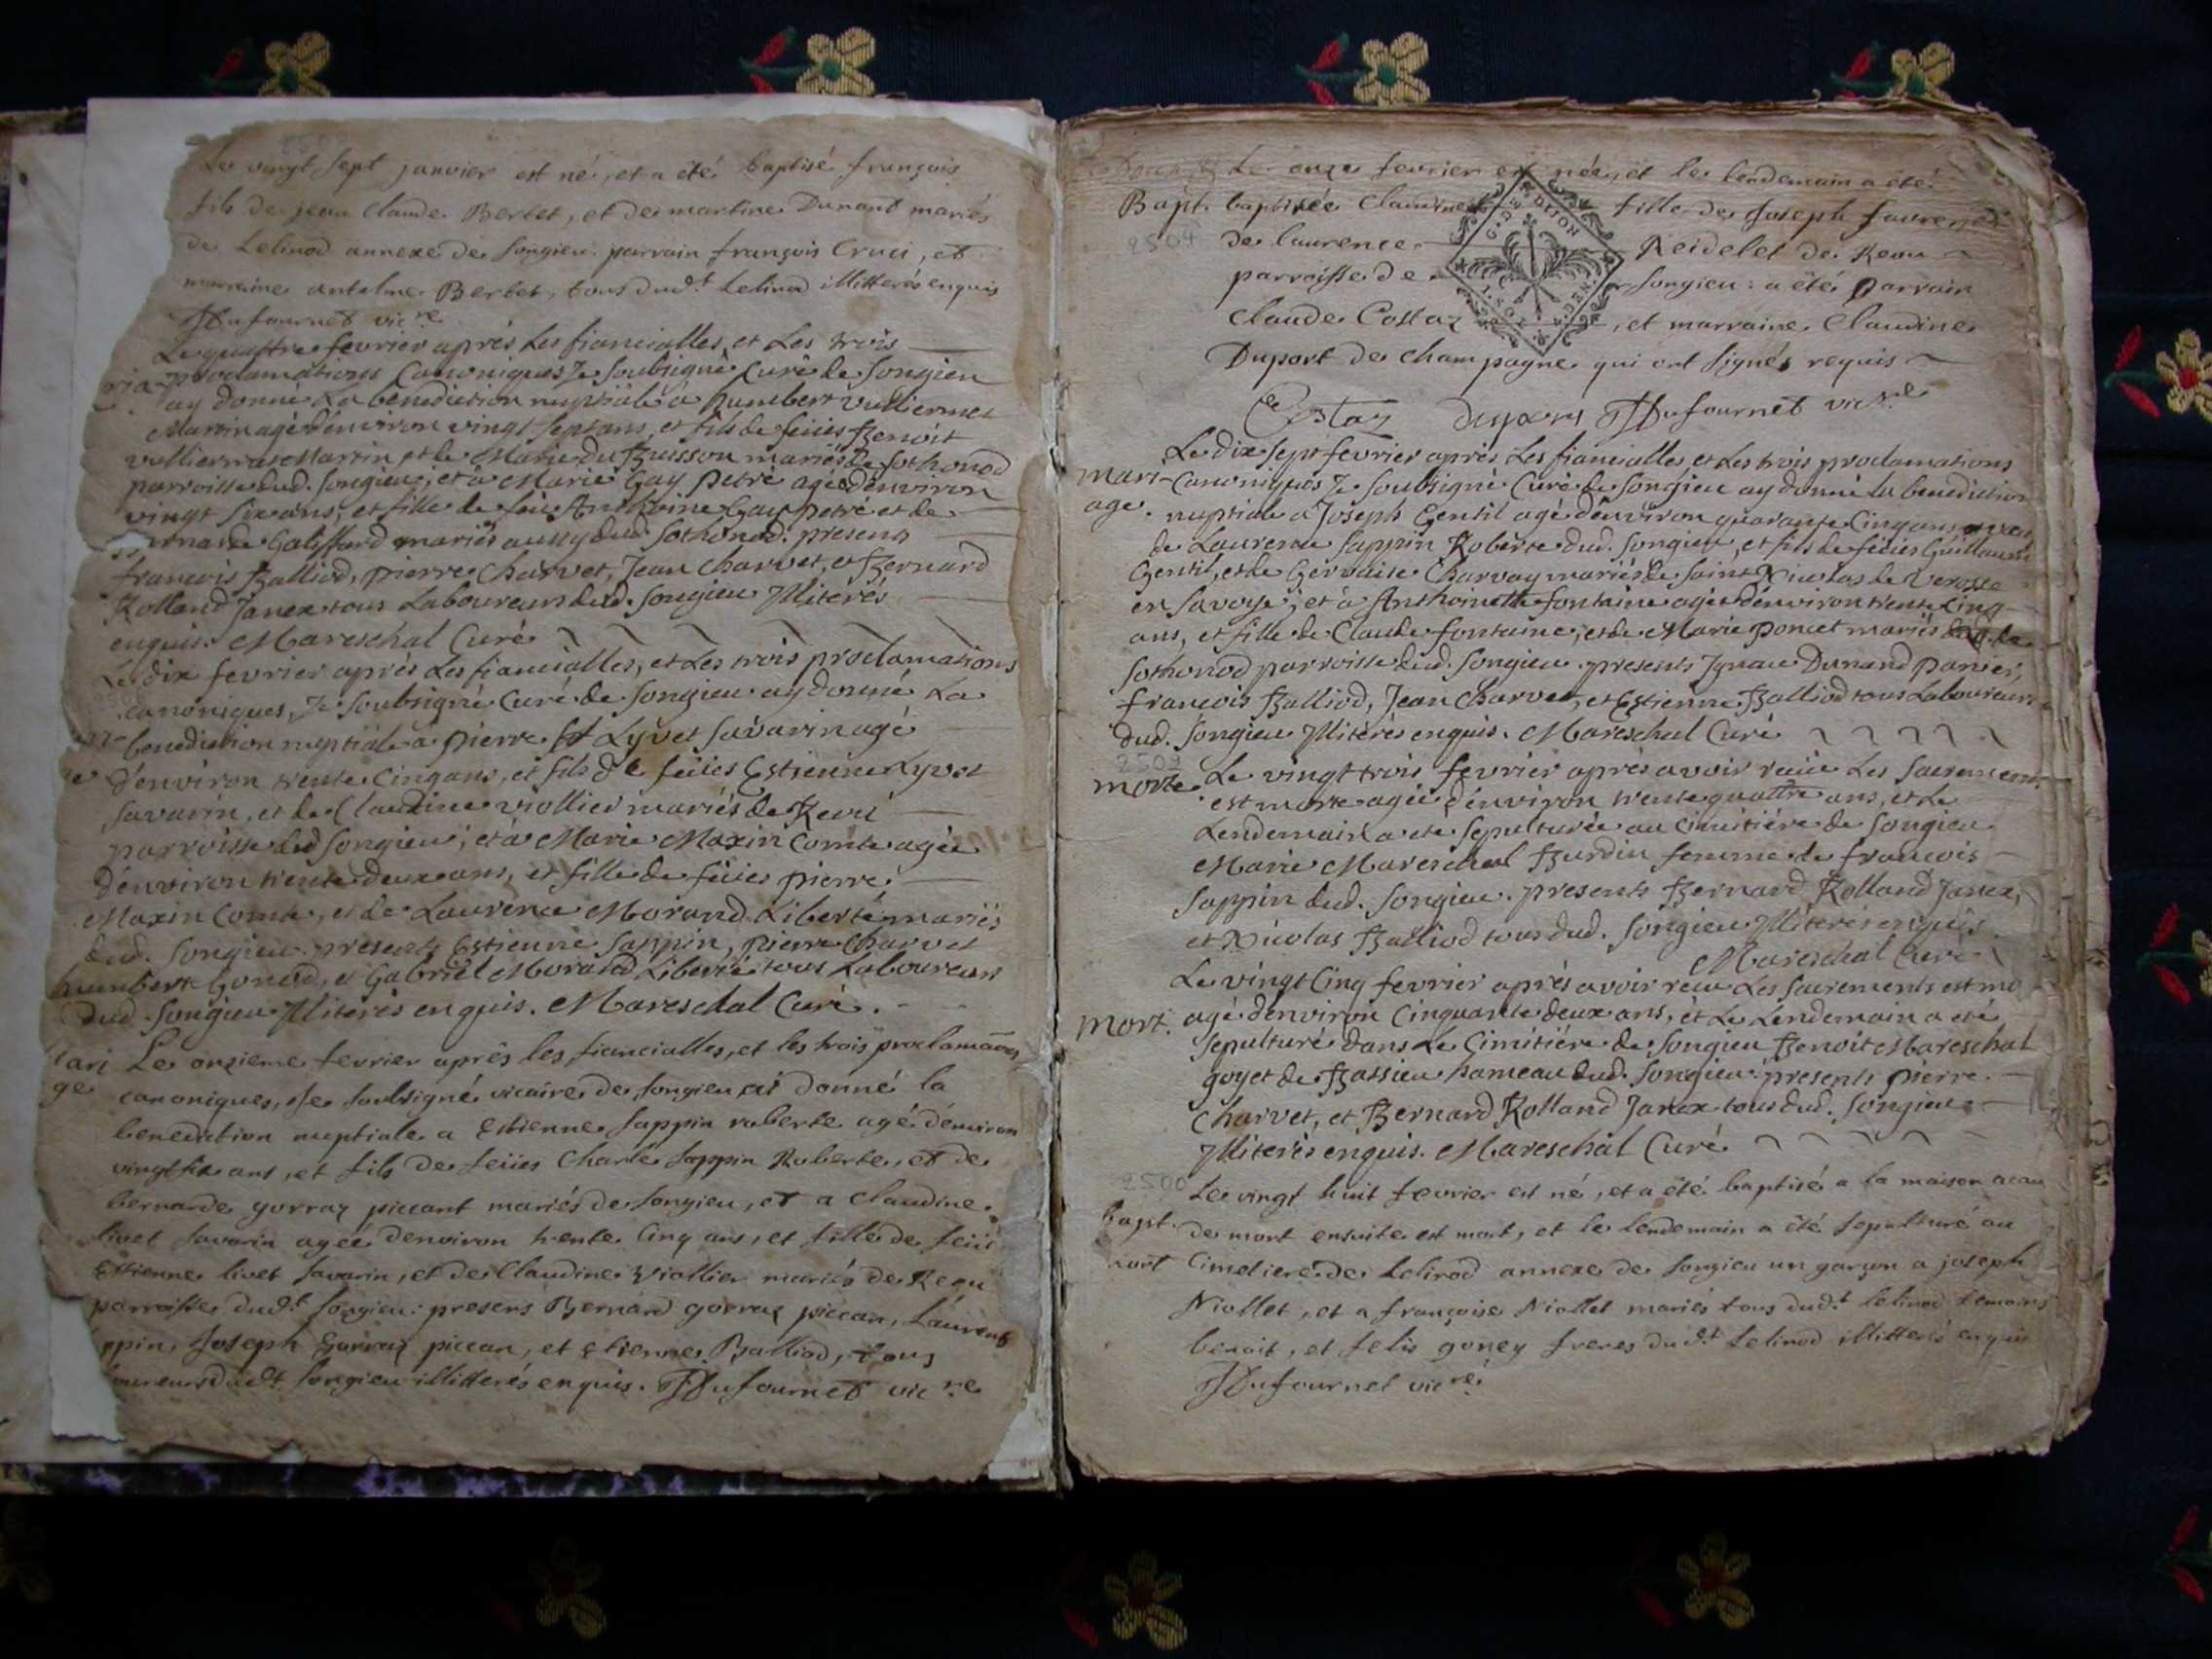 Le vingt sept janvier est né, et a été baptisé françois
fils de jean claude Berlet, et de martine Dunant mariés
de Lelinod annexe de Songieu. parrain françois Cruci, et
marraine antelme Berlet, tous dud.t Lelinod illitterés enquis
Dufournet vic.re
Le quattre fevrier aprés Les fianciailles, et Les trois
ria proclamations Canoniques Je Soubsigné Curé de Songieu
ay donné La benediction nuptiale á humbert vulliermet
Martin agé d'environ vingt sept ans, et fils de feües Benoit
vulliermet Martin, et de Marie du Buisson mariés de Sothonod
parroisse dud. Songieu; et á Marie Gay Petre agée d'environ
vingt six ans, et fille de feü Anthoine Gay petre et de
Galiffard mariés aussy dud. Sothonod. presents
francois Balliod, pierre Charvet, Jean charvet, et Bernard
Rolland Janex tous Laboureurs dud. Songieu Jlliterés
enquis. Mareschal Curé
Le dix fevrier aprés Les fianciailles, et Les trois proclamations
canoniques, Je Soubsigné Curé de Songieu ay donné La
benediction nuptiale á pierre Lyvet Savarin agé
d'environ trente Cinq ans, et fils de feües Estienne Lyvet
Savarin, et de Claudine viollier mariés de
parroisse dud Songieu; et á Marie Maxin Comte agée
d'environ trente deux ans, et fille de feües pierre
Maxin Comte, et de Laurence Morand Liberté mariés
dud. Songieu. presents Estienne Sappin, pierre Charvet
humbert Gonod, et Gabriel Morand Liberté tous Laboureurs
dud. Songieu Jlliterés enquis. Mareschal Curé.
Mari Le onzieme fevrier aprés les fianciailles, et les trois proclamaões
ge canoniques, Je soubsigné vicaire de songieu ai donné la
benediction nuptiale a Estienne Sappin roberte agé d'environ
vingt six ans, et fils de feües Charle Sappin Roberte, et de
bernarde gorraz piccant mariés de songieu, et a claudine
livet savarin agée denviron trente cinq ans, et fille de feüe
Estienne livet savarin, et de Claudine Viollier mariés de
parroisse dud.t songieu: presens Bernard gorraz piccan, Laurent
ppin, Joseph Gorraz piccan, et Etienne Balliod, tous
dud.t songieu illitterés enquis. Dufournet vic.re
Le onze fevrier est née, et le lendemain a été
Bapt. baptisée Claudine fille de Joseph favre, et
2504 de laurence Reidelet de
parroisse de Songieu: a été parrain
claude Costaz, et marraine Claudine
Duport de champagne qui ont signés requis
Costaz duport Dufournet vic.re
G. DE DIJON
Le dix sept fevrier aprés Les fianciailles et Les trois proclamations
mari- Canoniques Je Soubsigné Curé de Songieu ay donné La benediction
age. nuptiale á Joseph Gentil agé d'environ quarante Cinq ans
de Laurence Sappin Roberte dud. Songieu, et fils de feües Guillaume
Gentil, et de Gervaise Charvay mariés de Saint Nicolas de Verosse
en Savoye; et á Anthoinette fontaine agée d'environ trente Cinq
ans, et fille de Claude fontaine, et de Marie poncet mariés de
Sothonod parroisse dud. Songieu. presents Jgnace Dunand panier,
francois Balliod, Jean Charvet, et Estienne Balliod tous Laboureurs
dud. Songieu Jlliterés enquis. Mareschal Curé
morte. Le vingt trois fevrier aprés avoir reçue Les Sacrements
est morte agée d'environ trente quattre ans, et Le
Lendemain a eté sepulturée au Cimitiére de Songieu
Marie Mareschal Burdin femme de francois
Sappin dud. Songieu. presents Bernard Rolland Janex,
et Nicolas Balliod tous dud. Songieu Jlliterés enquis.
Mareschal Curé
Le vingt Cinq fevrier aprés avoir reçu Les Sacrements est mo
mort. agé d'environ Cinquante deux ans, et Le Lendemain a eté
sepulturé dans Le Cimitiére de Songieu Benoit Mareschal
goyet de Bassieu hameau dud. Songieu. presents pierre
Charvet, et Bernard Rolland Janex tous dud. Songieu
Jlliterés enquis. Mareschal Curé
2500 Le vingt huit fevrier est né, et a été baptisé a la maison acau
bapt. de mort ensuite est mort, et le lendemain a été sepulturé au
mort Cimetiere de Lelinod annexe de songieu un garçon a joseph
Niollet, et a françoise Niollet mariés tous dud.t lelinod temoins
benoit, et felix goney freres dud.t Lelinod illitterés enquis
Dufournet vic.re